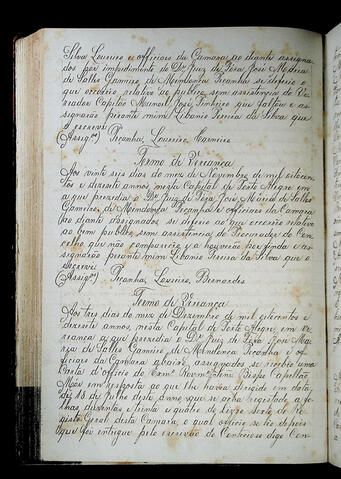 Silva Loureiro e officiaes da Camara ao diante assigna-
dos por impedimento do Dr. Juiz de Fóra José Maria
de Salles Gameiro de Mendonça Peçanha se deferio o
que occorrêo relativo ao publico sem assistencia do Ve-
reador Capitão Manoel José Pinheiro que faltou e as-
signarão perante mim Libanio Pereira da Silva que
o escrevi
(Assig.os) Peçanha, Loureiro,
Termo de Vereança
Aos vinte seis dias do mez de Novembro de mil oitocen-
tos e dezesete annos nesta Capital de Porto Alegre em
a que prezedio o Dr. Juiz de Fóra José Maria de Salles
Gameiro de Mendonça Peçanha e officiaes da Camara
ao diante assignados se deferio ao que occorrêo relativo
ao bem publico sem assistencia do Procurador do Con-
celho que não comparecêo e a houverão por finda e as-
signarão perante mim Libanio Pereira da Silva que o
escrevi
(Assig.os) Peçanha, Loureiro, Bernardes
Termo de Vereança
Aos tres dias do mez de Dezembro de mil oitocentos e
dezesete annos, nesta Capital de Porto Alegre, em ve-
reança a que prezedio o Dr. Juiz de Fóra José Ma-
ria de Salles Gameiro de Mendonça Peçanha e of-
ficiaes da Camara abaixo assignados se recebeo uma
Carta d'officio do Exm.o Revm.o Snr. Bispo Capellão
Mór em resposta ao que lhe havia dirigido em data
de 18 de Julho deste anno que se acha registado a fo-
lhas duzentos e trinta e quatro do Livro seis do Re-
gisto Geral desta Camara, o qual officio se lio depois
que foi entregue pelo escrivão do Contencioso digo Con-